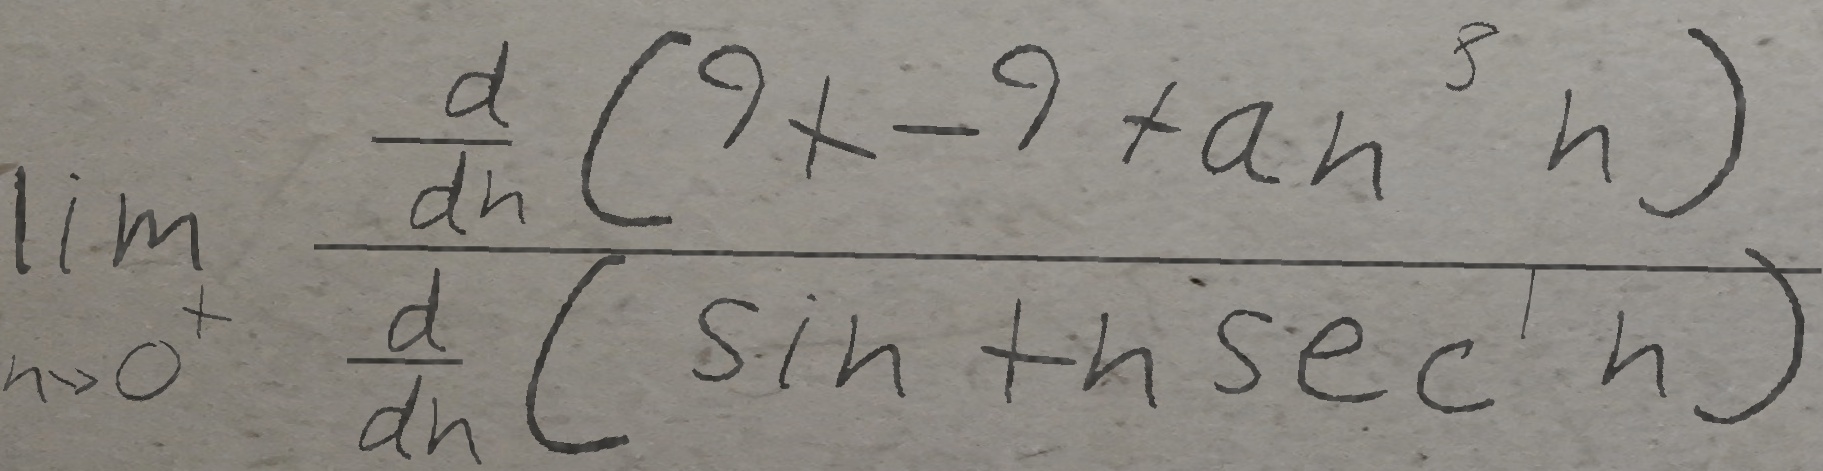 \lim_{n \to 0^+} \frac{\frac{d}{dn}(9x - 9 + an^8 n)}{\frac{d}{dn}(\sin + n \sec^1 n)}